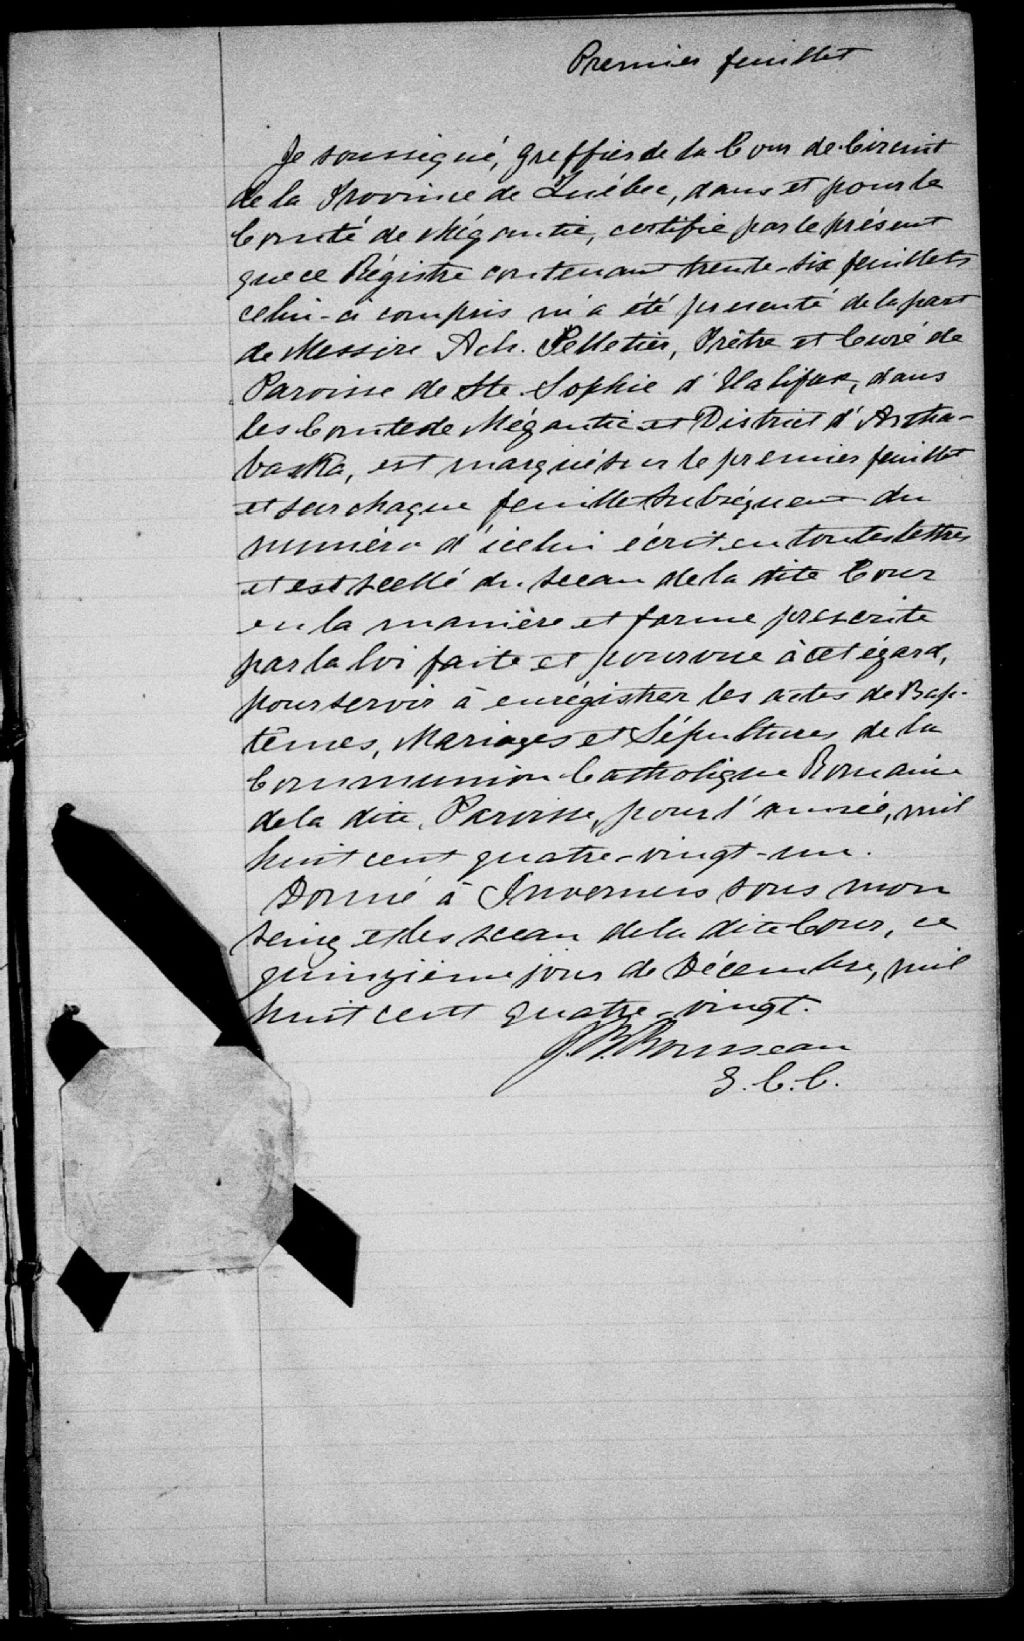 Premier feuillet
Je soussigné, Greffier de la Cour de Circuit
de la Province de Québec, dans et pour le
Comté de Mégantic, certifie par le présent
que ce Régistre contenant trente-six feuillets
celui-ci compris m'a été presenté de la part
de Messire Ach. Pelletier, Prêtre et Curé de
Paroisse de Ste Sophie d'Halifax, dans
les Comté de Mégantic et District d'Artha-
baska, est marqué sur le premier feuillet
et sur chaque feuillet subséquent du
numéro d'icelui écrit en toutes lettres
et est scellé du sceau de la dite Cour
en la manière et forme prescrite
par la loi faite et pourvue à cet égard,
pour servir à enrégistrer les actes de Bap-
têmes, Mariages et Sépultures de la
Communion Catholique Romaine
de la dite Paroisse, pour l'année, mil
huit cent quatre-vingt-un.
Donné à Inverness sous mon
seing et les sceau de la dite Cour, ce
quinzième jour de Décembre, mil
huit cent quatre-vingt.
J. B. Rousseau
G. C. C.